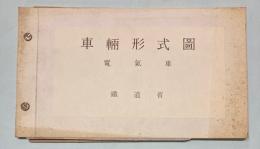 車輛形式圖
電氣車
鐵道省